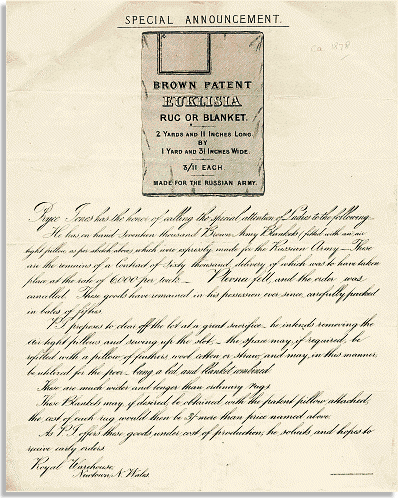 SPECIAL ANNOUNCEMENT.
ca. 1878
BROWN PATENT
EUKLISIA
RUG OR BLANKET.
2 YARDS AND 11 INCHES LONG.
BY
1 YARD AND 31 INCHES WIDE.
3/11 EACH.
MADE FOR THE RUSSIAN ARMY.
Pryce Jones has the honor of calling the special attention of Ladies to the following.
He has on hand Seventeen thousand Brown Army Blankets (fitted with an air
tight pillow, as per sketch above) which were expressly made for the Russian Army — These
are the remains of a Contract of Sixty thousand, delivery of which was to have taken
place at the rate of 6000 per week — Plevna fell, and the order was
cancelled. These goods have remained in his possession ever since, carefully packed
in bales of fifties
P.J proposes to clear off the lot at a great sacrifice, he intends removing the
air tight pillows and sewing up the slot, — the space may if required, be
refilled with a pillow of feathers wool cotton or straw, and may, in this manner,
be utilized for the poor, being a bed, and blanket combined
These are much wider and longer than ordinary rugs
These Blankets may if desired, be obtained with the patent pillow attached,
the cost of each rug would then be 3/ more than price named above.
As P.J offers these goods under cost of production, he solicits and hopes to
receive early orders
Royal Warehouse,
Newtown, N. Wales.